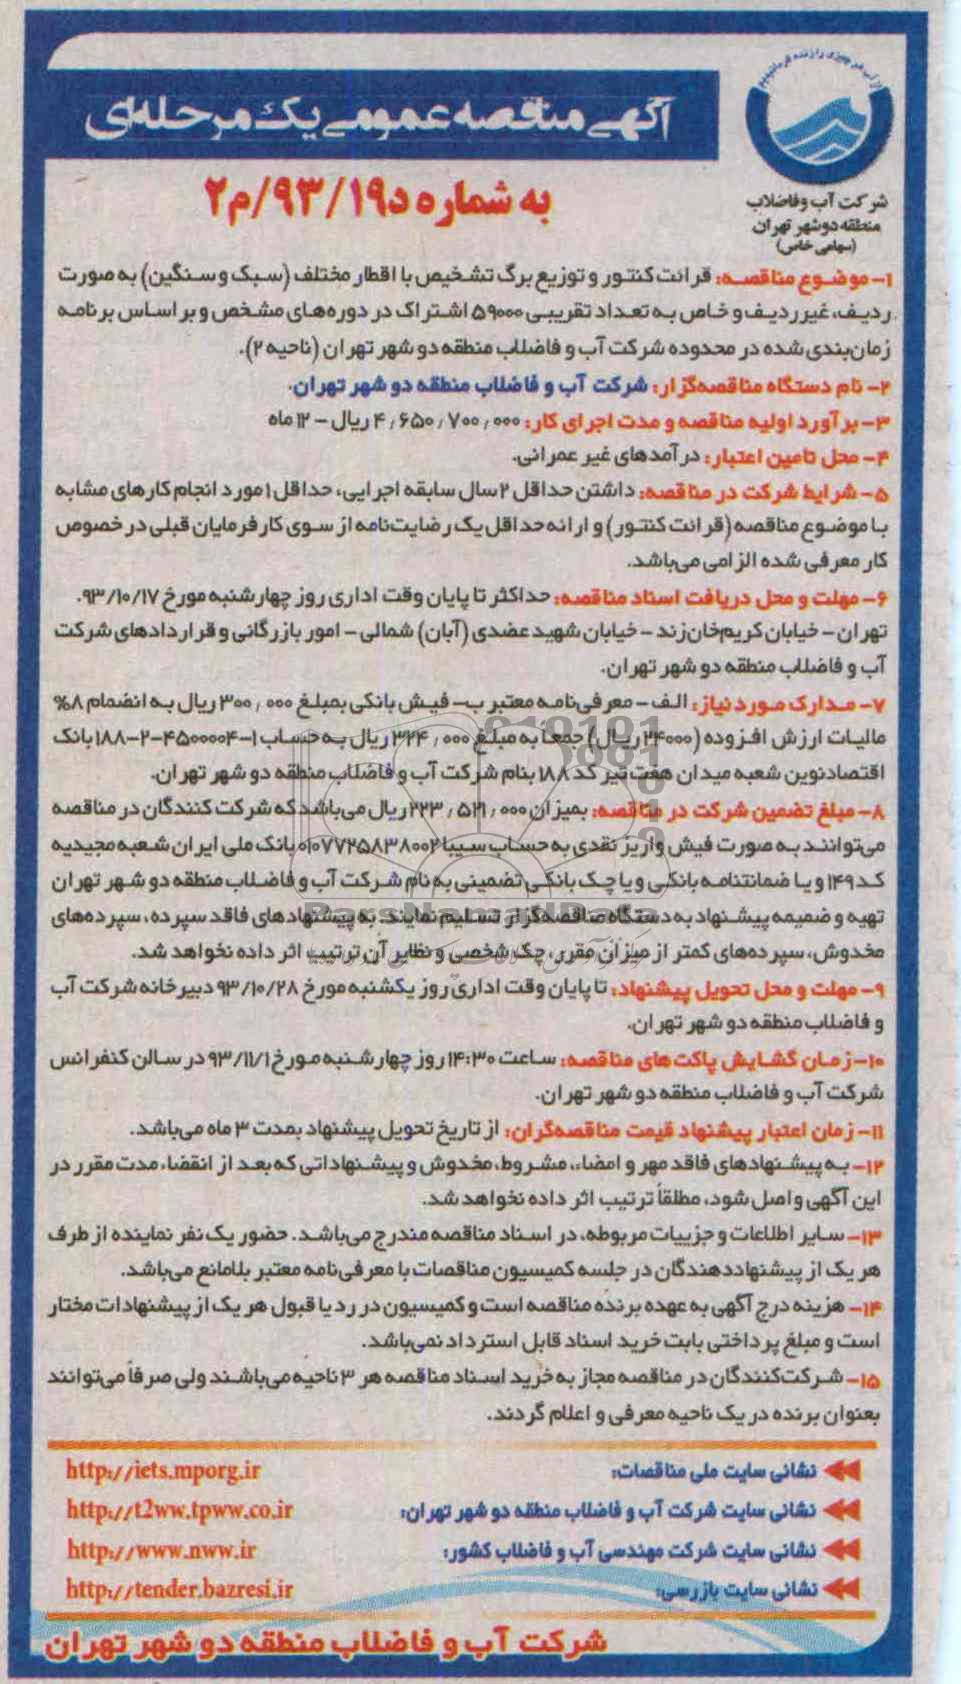 از آب هر چیزی را زنده گردانیدیم
شرکت آب و فاضلاب
منطقه دو شهر تهران
(سهامی خاص)
آگهی مناقصه عمومی یک مرحله‌ای
به شماره د۹۳/۱۹/م۲
۱- موضوع مناقصه: قرائت کنتور و توزیع برگ تشخیص با اقطار مختلف (سبک و سنگین) به صورت
ردیف، غیرردیف و خاص به تعداد تقریبی ۵۹۰۰۰ اشتراک در دوره‌های مشخص و بر اساس برنامه
زمان‌بندی شده در محدوده شرکت آب و فاضلاب منطقه دو شهر تهران (ناحیه ۲).
۲- نام دستگاه مناقصه‌گزار: شرکت آب و فاضلاب منطقه دو شهر تهران.
۳- برآورد اولیه مناقصه و مدت اجرای کار: ۴٫۶۵۰٫۷۰۰٫۰۰۰ ریال - ۱۲ ماه
۴- محل تامین اعتبار: درآمدهای غیر عمرانی.
۵- شرایط شرکت در مناقصه: داشتن حداقل ۲ سال سابقه اجرایی، حداقل ۱ مورد انجام کارهای مشابه
با موضوع مناقصه (قرائت کنتور) و ارائه حداقل یک رضایت‌نامه از سوی کارفرمایان قبلی در خصوص
کار معرفی شده الزامی می‌باشد.
۶- مهلت و محل دریافت اسناد مناقصه: حداکثر تا پایان وقت اداری روز چهارشنبه مورخ ۹۳/۱۰/۱۷.
تهران - خیابان کریم‌خان‌زند - خیابان شهید عضدی (آبان) شمالی - امور بازرگانی و قراردادهای شرکت
آب و فاضلاب منطقه دو شهر تهران.
۷- مدارک مورد نیاز: الف - معرفی‌نامه معتبر ب- فیش بانکی بمبلغ ۳۰۰٫۰۰۰ ریال به انضمام ۸%
مالیات ارزش افزوده (۲۴۰۰۰ ریال) جمعاً به مبلغ ۳۲۴٫۰۰۰ ریال به حساب ۱-۴۵۰۰۰۰۴-۲-۱۸۸ بانک
اقتصادنوین شعبه میدان هفت تیر کد ۱۸۸ بنام شرکت آب و فاضلاب منطقه دو شهر تهران.
۸- مبلغ تضمین شرکت در مناقصه: بمیزان ۲۲۳٫۵۲۱٫۰۰۰ ریال می‌باشد که شرکت کنندگان در مناقصه
می‌توانند به صورت فیش واریز نقدی به حساب سیبا ۰۱۰۷۷۲۵۸۳۸۰۰۲ بانک ملی ایران شعبه مجیدیه
کد ۱۴۹ و یا ضمانتنامه بانکی و یا چک بانکی تضمینی به نام شرکت آب و فاضلاب منطقه دو شهر تهران
تهیه و ضمیمه پیشنهاد به دستگاه مناقصه‌گزار تسلیم نمایند. به پیشنهادهای فاقد سپرده، سپرده‌های
مخدوش، سپرده‌های کمتر از میزان مقرر، چک شخصی و نظایر آن ترتیب اثر داده نخواهد شد.
۹- مهلت و محل تحویل پیشنهاد: تا پایان وقت اداری روز یکشنبه مورخ ۹۳/۱۰/۲۸ دبیرخانه شرکت آب
و فاضلاب منطقه دو شهر تهران.
۱۰- زمان گشایش پاکت های مناقصه: ساعت ۱۴:۳۰ روز چهارشنبه مورخ ۹۳/۱۱/۱ در سالن کنفرانس
شرکت آب و فاضلاب منطقه دو شهر تهران.
۱۱- زمان اعتبار پیشنهاد قیمت مناقصه‌گران: از تاریخ تحویل پیشنهاد بمدت ۳ ماه می‌باشد.
۱۲- به پیشنهادهای فاقد مهر و امضاء، مشروط، مخدوش و پیشنهاداتی که بعد از انقضاء مدت مقرر در
این آگهی واصل شود، مطلقاً ترتیب اثر داده نخواهد شد.
۱۳- سایر اطلاعات و جزییات مربوطه، در اسناد مناقصه مندرج می‌باشد. حضور یک نفر نماینده از طرف
هر یک از پیشنهاددهندگان در جلسه کمیسیون مناقصات با معرفی‌نامه معتبر بلامانع می‌باشد.
۱۴- هزینه درج آگهی به عهده برنده مناقصه است و کمیسیون در رد یا قبول هر یک از پیشنهادات مختار
است و مبلغ پرداختی بابت خرید اسناد قابل استرداد نمی‌باشد.
۱۵- شرکت‌کنندگان در مناقصه مجاز به خرید اسناد مناقصه هر ۳ ناحیه می‌باشند ولی صرفاً می‌توانند
بعنوان برنده در یک ناحیه معرفی و اعلام گردند.
نشانی سایت ملی مناقصات: http://iets.mporg.ir
نشانی سایت شرکت آب و فاضلاب منطقه دو شهر تهران: http://t2ww.tpww.co.ir
نشانی سایت شرکت مهندسی آب و فاضلاب کشور: http://www.nww.ir
نشانی سایت بازرسی: http://tender.bazresi.ir
شرکت آب و فاضلاب منطقه دو شهر تهران
ParsNamadData